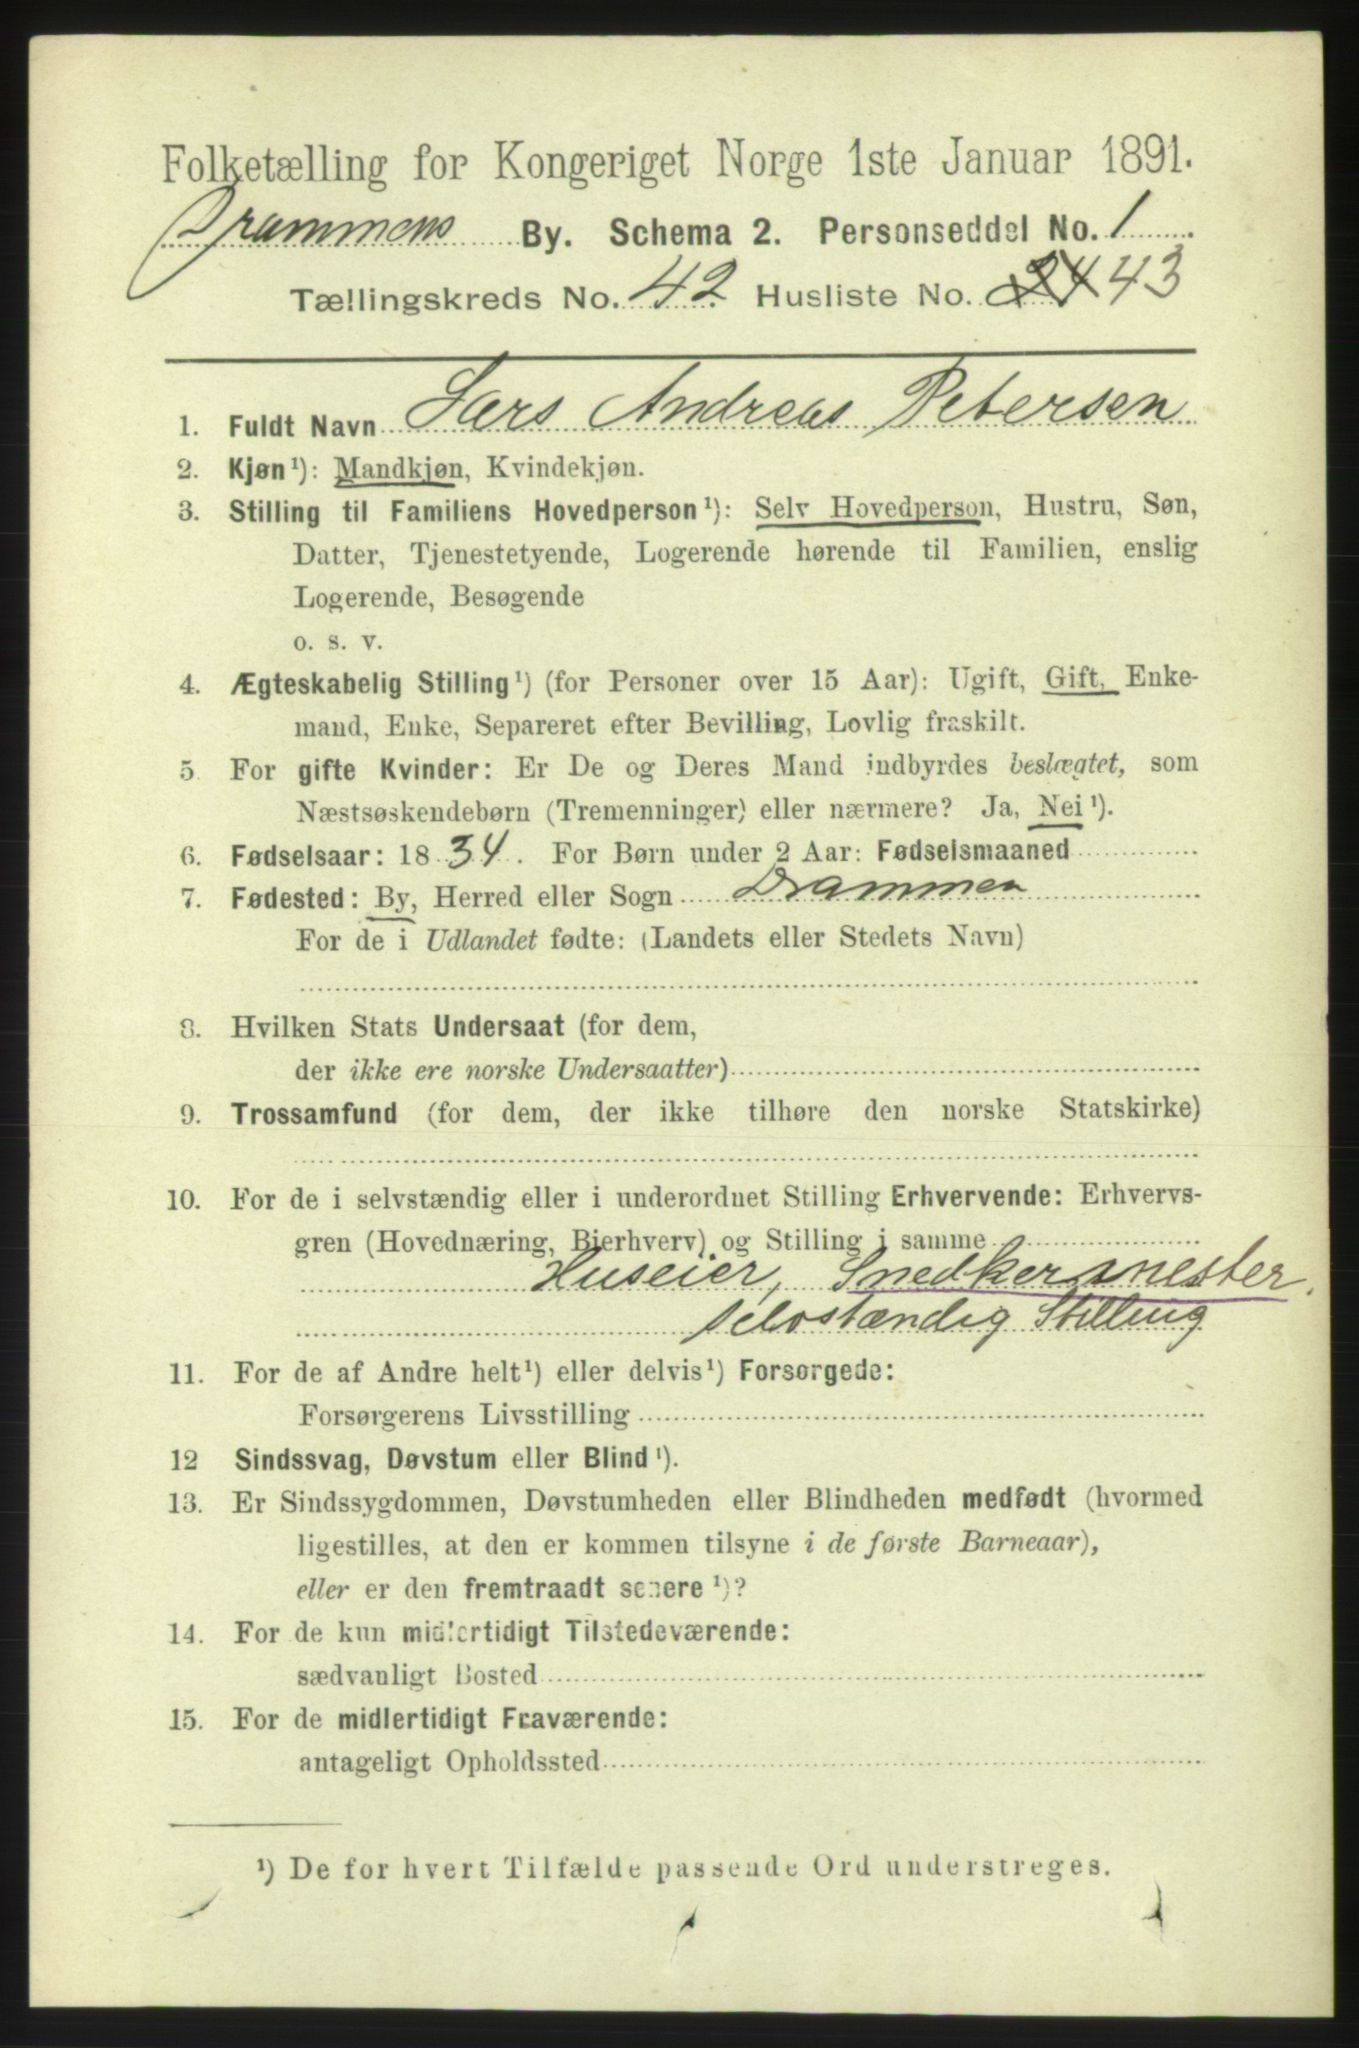 Folketælling for Kongeriget Norge 1ste Januar 1891.
Drammens By. Schema 2. Personseddel No. 1
Tællingskreds No. 42 Husliste No. 24 43
1. Fuldt Navn Lars Andreas Petersen
2. Kjøn¹): Mandkjøn, Kvindekjøn.
3. Stilling til Familiens Hovedperson¹): Selv Hovedperson, Hustru, Søn,
Datter, Tjenestetyende, Logerende hørende til Familien, enslig
Logerende, Besøgende
o. s. v.
4. Ægteskabelig Stilling¹) (for Personer over 15 Aar): Ugift, Gift, Enke-
mand, Enke, Separeret efter Bevilling, Lovlig fraskilt.
5 For gifte Kvinder: Er De og Deres Mand indbyrdes beslægtet, som
Næstsøskendebørn (Tremenninger) eller nærmere? Ja, Nei¹).
6. Fødselsaar: 1834. For Børn under 2 Aar: Fødselsmaaned
7. Fødested: By, Herred eller Sogn Drammen
For de i Udlandet fødte: (Landets eller Stedets Navn)
8. Hvilken Stats Undersaat (for dem,
der ikke ere norske Undersaatter)
9. Trossamfund (for dem, der ikke tilhøre den norske Statskirke)
10. For de i selvstændig eller i underordnet Stilling Erhvervende: Erhvervs-
gren (Hovednæring, Bierhverv) og Stilling i samme
Huseier, Snedkermester.
selvstændig Stilling
11. For de af Andre helt¹) eller delvis¹) Forsørgede:
Forsørgerens Livsstilling
12 Sindssvag, Døvstum eller Blind¹).
13. Er Sindssygdommen, Døvstumheden eller Blindheden medfødt (hvormed
ligestilles, at den er kommen tilsyne i de første Barneaar),
eller er den fremtraadt senere¹)?
14. For de kun midlertidigt Tilstedeværende:
sædvanligt Bosted
15. For de midlertidigt Fraværende:
antageligt Opholdssted
¹) De for hvert Tilfælde passende Ord understreges.